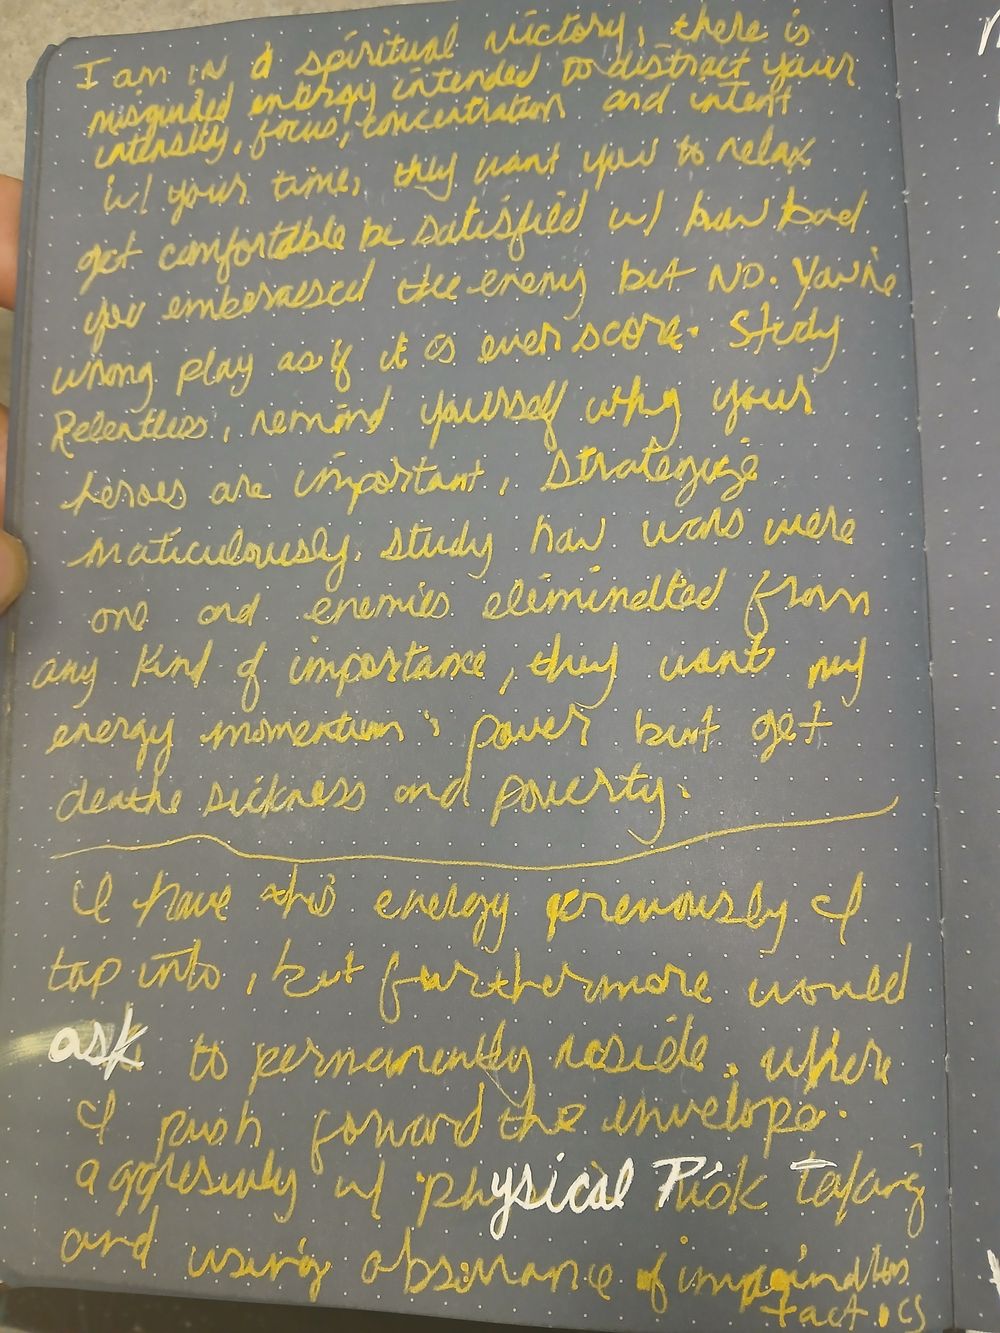 I am in a spiritual victory, there is
misguided energy intended to distract your
intensity, focus, concentration and intent
w/ your time, they want you to relax
get comfortable be satisfied w/ how bad
you emberassed the enemy but NO. You're
wrong play as if it is even score. Study
Relentless, remind yourself why your
heroes are important, strategize
maticulously. study how wars were
one and enemies eliminated from
any kind of importance, they want my
energy momentum & power but get
deathe sickness and poverty.
I have this energy previously I
tap into, but furthermore would
ask to permanently reside, where
I push forward the envelope.
aggresively w/ physical Risk Taking
and using of imagination
tactics